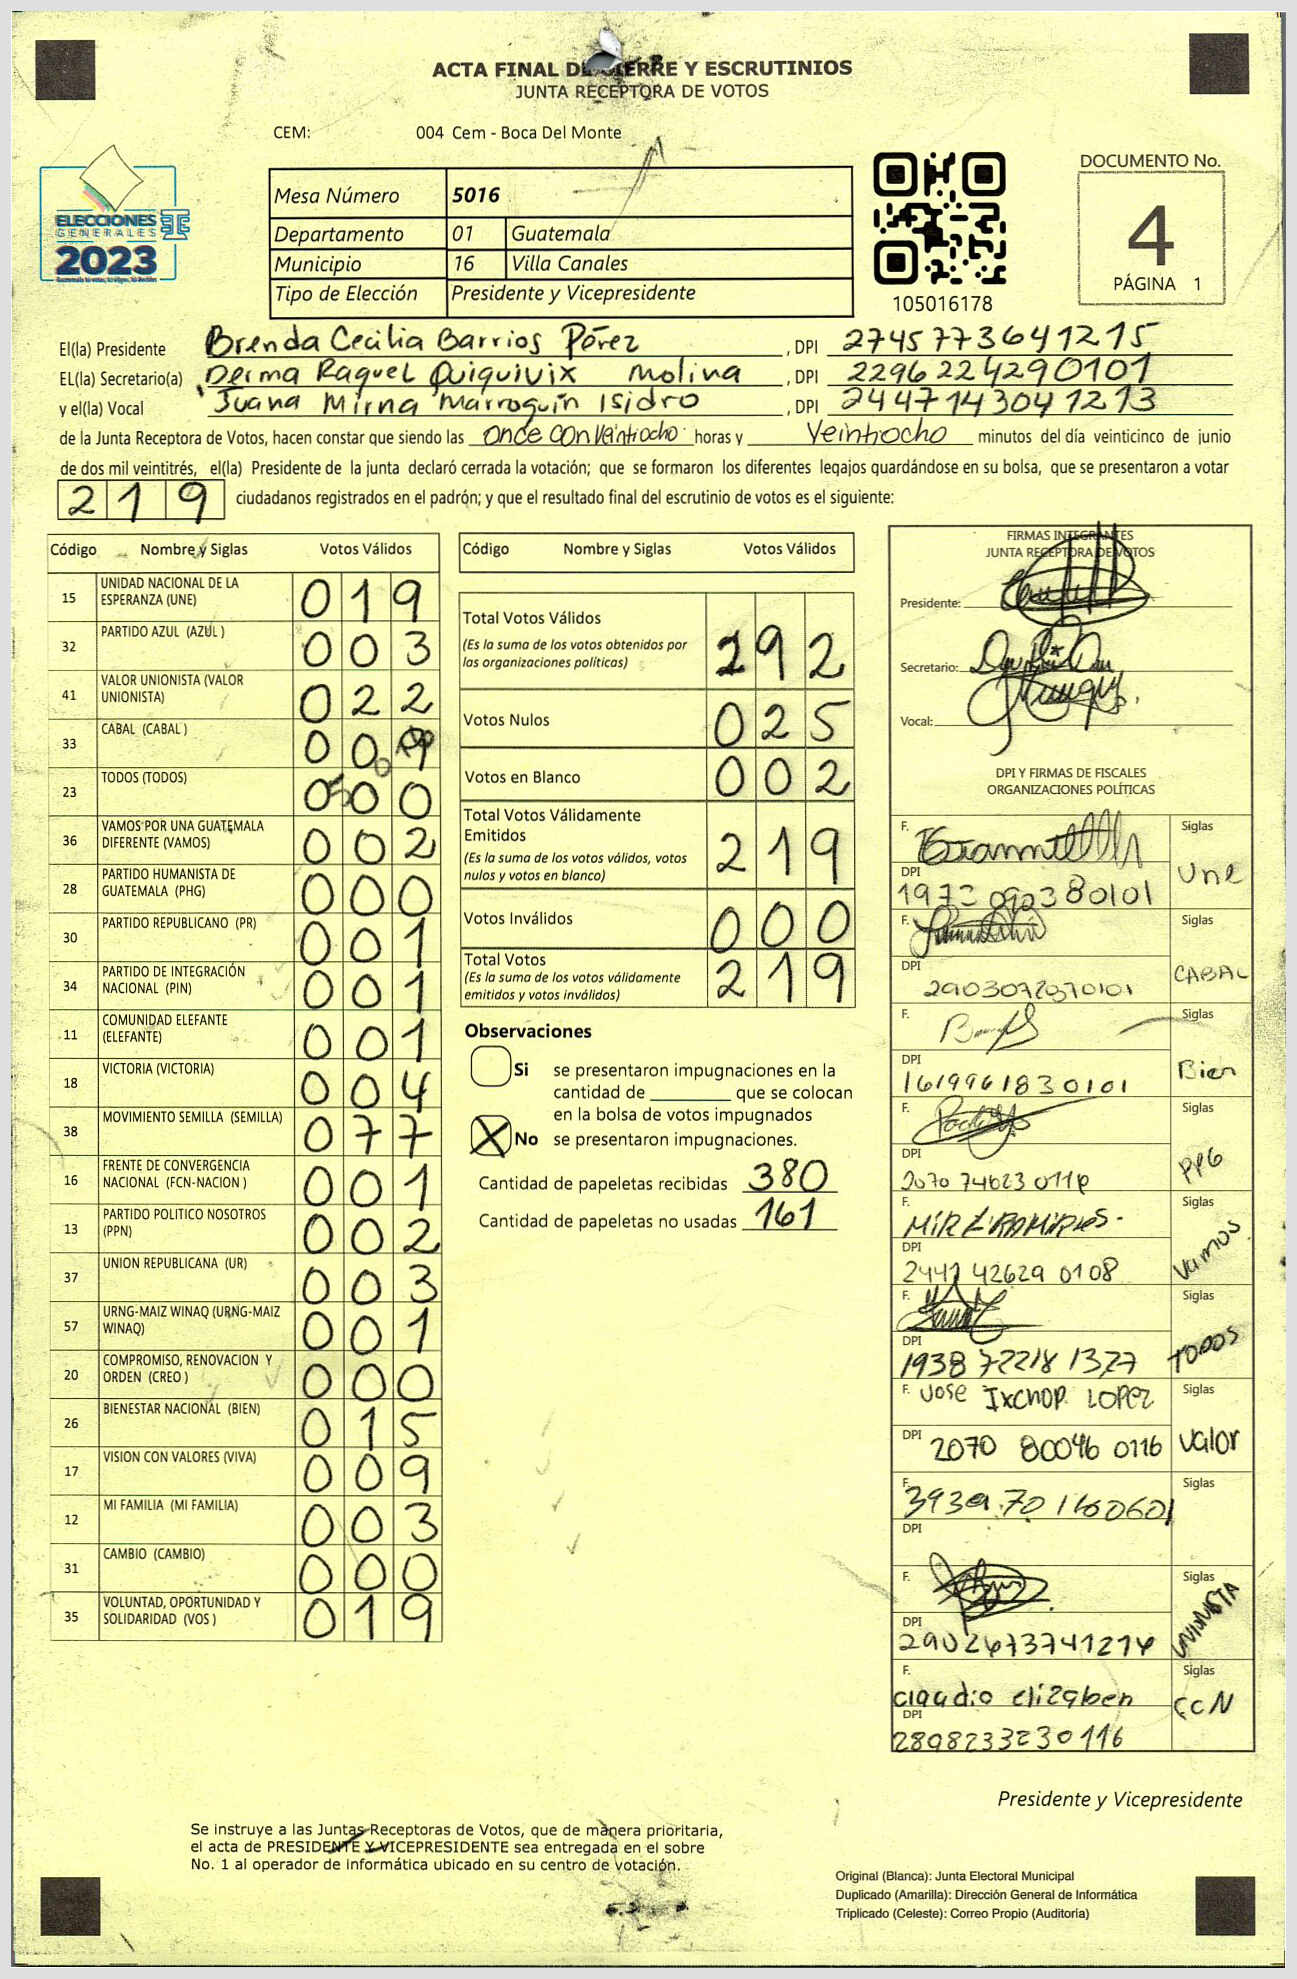 ACTA FINAL DE CIERRE Y ESCRUTINIOS
JUNTA RECEPTORA DE VOTOS
CEM: 004 Cem - Boca Del Monte
DOCUMENTO No.
4
PÁGINA 1
ELECCIONES
GENERALES
2023
Mesa Número 5016
Departamento 01 Guatemala
Municipio 16 Villa Canales
Tipo de Elección Presidente y Vicepresidente
105016178
El(la) Presidente Brenda Cecilia Barrios Pérez, DPI 2745773641215
EL(la) Secretario(a) Derma Raquel Quiquivix Molina, DPI 2296224290101
y el(la) Vocal Juana Mirna Marroquín Isidro, DPI 2447143041213
de la Junta Receptora de Votos, hacen constar que siendo las once con veintiocho horas y Veintiocho minutos del día veinticinco de junio
de dos mil veintitrés, el(la) Presidente de la junta declaró cerrada la votación; que se formaron los diferentes legajos guardándose en su bolsa, que se presentaron a votar
219 ciudadanos registrados en el padrón; y que el resultado final del escrutinio de votos es el siguiente:
Código Nombre y Siglas Votos Válidos
15 UNIDAD NACIONAL DE LA ESPERANZA (UNE) 019
32 PARTIDO AZUL (AZUL ) 003
41 VALOR UNIONISTA (VALOR UNIONISTA) 022
33 CABAL (CABAL ) 00
23 TODOS (TODOS) 0 0
36 VAMOS POR UNA GUATEMALA DIFERENTE (VAMOS) 002
28 PARTIDO HUMANISTA DE GUATEMALA (PHG) 000
30 PARTIDO REPUBLICANO (PR) 001
34 PARTIDO DE INTEGRACIÓN NACIONAL (PIN) 001
11 COMUNIDAD ELEFANTE (ELEFANTE) 001
18 VICTORIA (VICTORIA) 004
38 MOVIMIENTO SEMILLA (SEMILLA) 077
16 FRENTE DE CONVERGENCIA NACIONAL (FCN-NACION ) 001
13 PARTIDO POLITICO NOSOTROS (PPN) 002
37 UNION REPUBLICANA (UR) 003
57 URNG-MAIZ WINAQ (URNG-MAIZ WINAQ) 001
20 COMPROMISO, RENOVACION Y ORDEN (CREO ) 000
26 BIENESTAR NACIONAL (BIEN) 015
17 VISION CON VALORES (VIVA) 009
12 MI FAMILIA (MI FAMILIA) 003
31 CAMBIO (CAMBIO) 000
35 VOLUNTAD, OPORTUNIDAD Y SOLIDARIDAD (VOS ) 019
Código Nombre y Siglas Votos Válidos
Total Votos Válidos 192
(Es la suma de los votos obtenidos por
las organizaciones políticas)
Votos Nulos 025
Votos en Blanco 002
Total Votos Válidamente
Emitidos 219
(Es la suma de los votos válidos, votos
nulos y votos en blanco)
Votos Inválidos 000
Total Votos 219
(Es la suma de los votos válidamente
emitidos y votos inválidos)
Observaciones
Si se presentaron impugnaciones en la
cantidad de ________ que se colocan
en la bolsa de votos impugnados
X No se presentaron impugnaciones.
Cantidad de papeletas recibidas 380
Cantidad de papeletas no usadas 161
FIRMAS INTEGRANTES
JUNTA RECEPTORA DE VOTOS
Presidente:
Secretario:
Vocal:
DPI Y FIRMAS DE FISCALES
ORGANIZACIONES POLÍTICAS
F. Siglas Une
DPI
F. Siglas CABAL
DPI
F. Siglas Bien
DPI 1619961830101
F. Siglas PPG
DPI
F. Siglas Vamos
DPI
F. Siglas TODOS
DPI 1938 72218 1327
F. Jose Ixchop LOPez Siglas Valor
DPI 2070 80046 0116
F. Siglas
DPI
F. Siglas UNIONISTA
DPI
F. claudio elizaben Siglas FCN
DPI 2898233230116
Presidente y Vicepresidente
Se instruye a las Juntas Receptoras de Votos, que de manera prioritaria,
el acta de PRESIDENTE Y VICEPRESIDENTE sea entregada en el sobre
No. 1 al operador de informática ubicado en su centro de votación.
Original (Blanca): Junta Electoral Municipal
Duplicado (Amarilla): Dirección General de Informática
Triplicado (Celeste): Correo Propio (Auditoría)